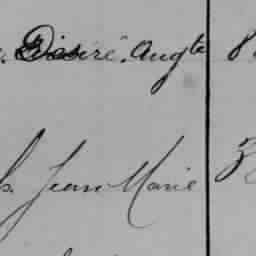 Désiré Aug.te 8
Jean Marie 3